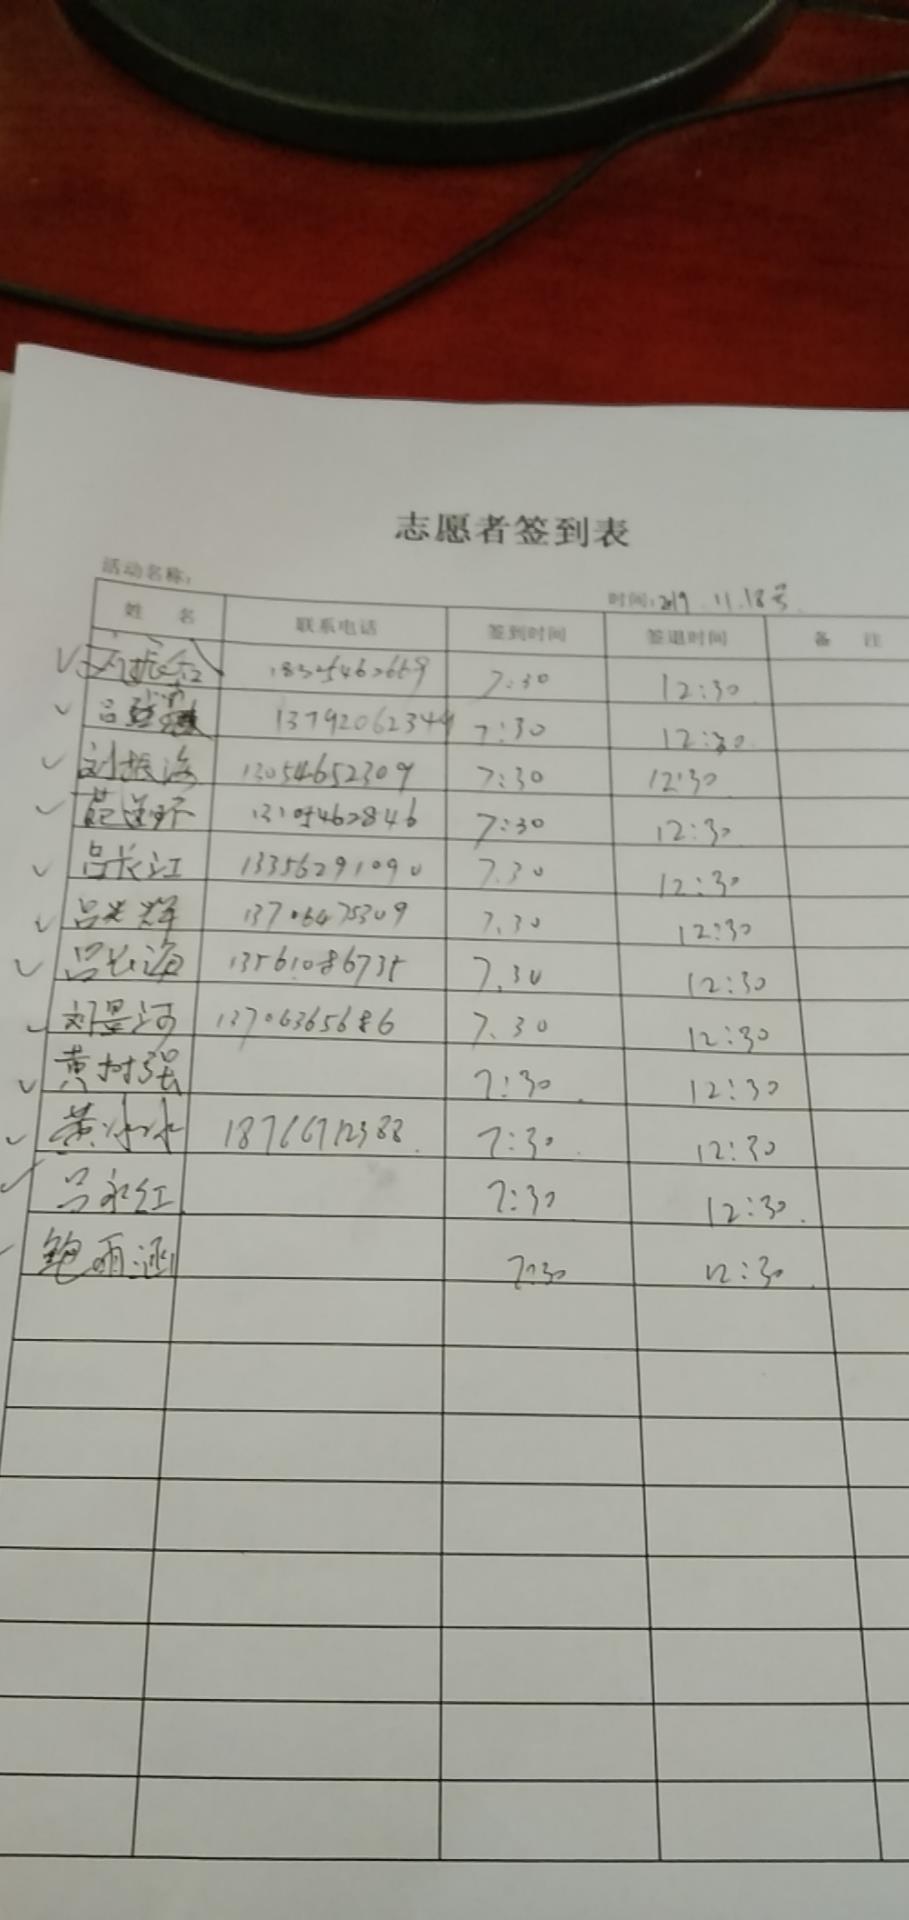 志愿者签到表
活动名称：
时间：2019.11.18号
姓 名 联系电话 签到时间 签退时间 备 注
7:30 12:30
吕 13792062349 7:30 12:30
刘振海 13054652309 7:30 12:30
7:30 12:30
吕长江 13356291090 7.30 12:30
吕光辉 13706475309 7.30 12:30
吕长海 13561086735 7.30 12:30
刘景河 13706365686 7.30 12:30
黄树强 7:30 12:30
黄冰冰 18766712388 7:30 12:30
吕永红 7:30 12:30
鲍雨涵 7:30 12:30